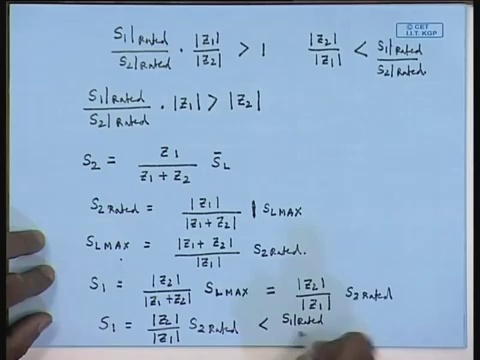 © CET
I.I.T. KGP
S1|Rated / S2|Rated · |Z1| / |Z2| > 1    |Z2| / |Z1| < S1|Rated / S2|Rated.
S1|Rated / S2|Rated · |Z1| > |Z2|
S2 = Z1 / (Z1 + Z2) S̄L
S2 Rated = |Z1| / |Z1 + Z2| | SLMAX
SLMAX = |Z1 + Z2| / |Z1| S2 Rated.
S1 = |Z2| / |Z1 + Z2| SLMAX = |Z2| / |Z1| S2 Rated
S1 = |Z2| / |Z1| S2 Rated < S1|Rated